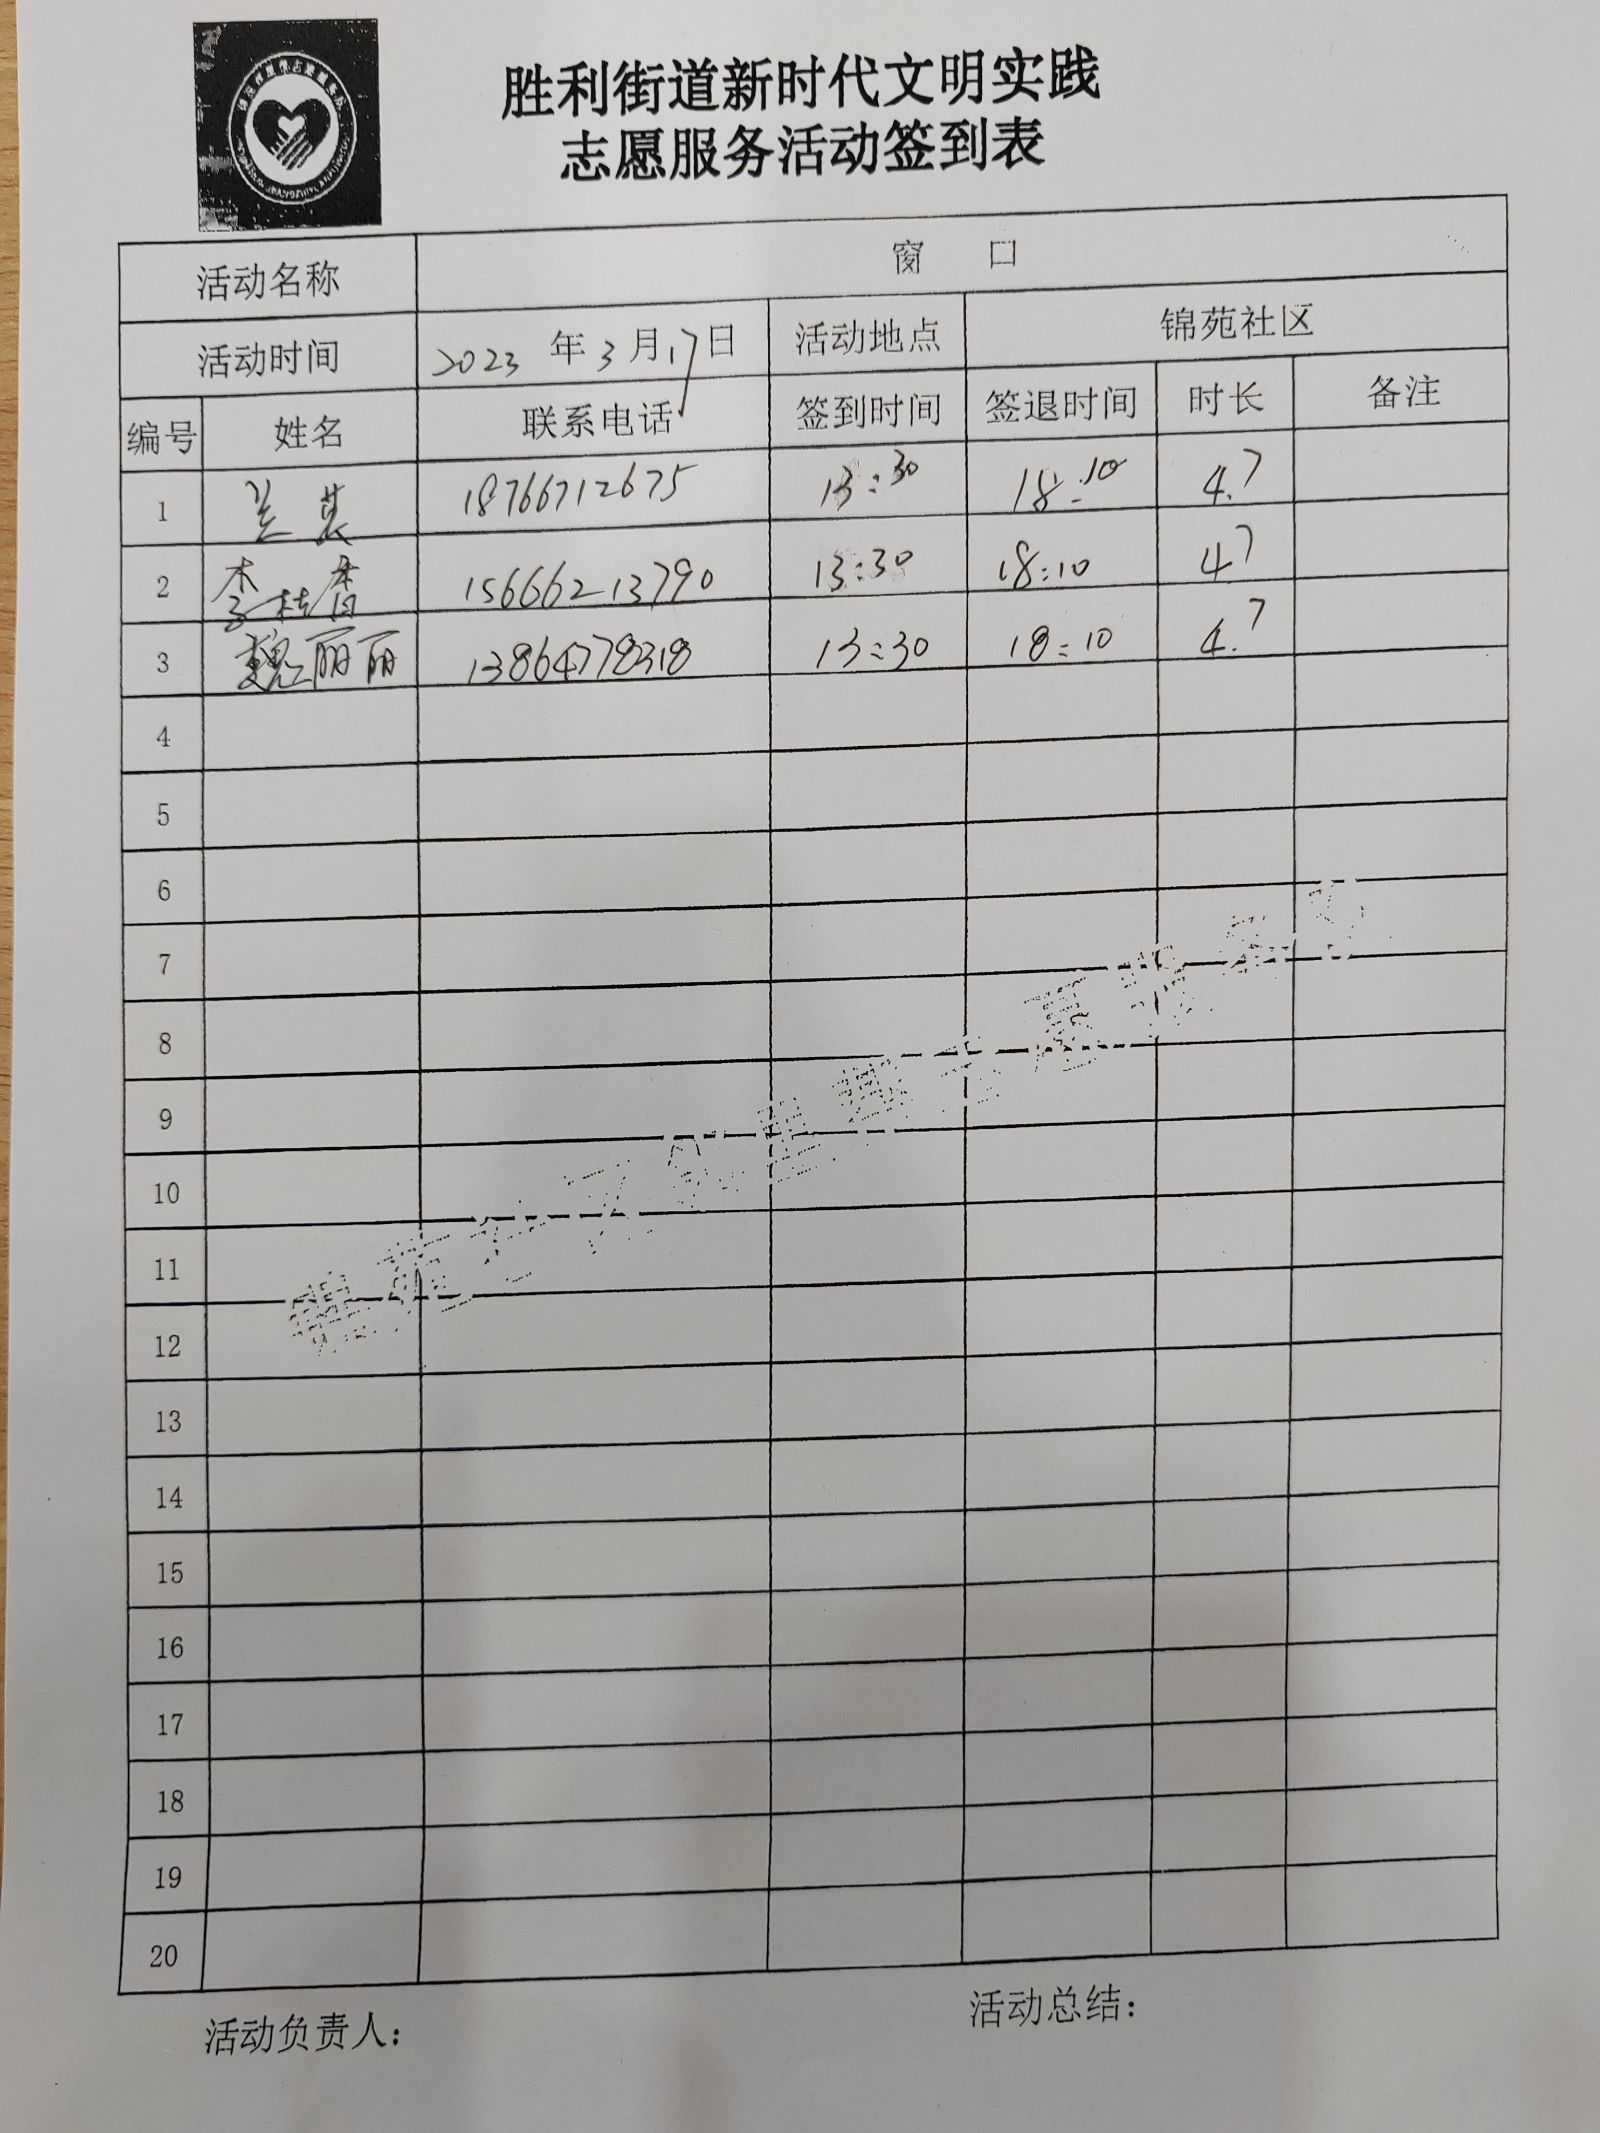 胜利街道新时代文明实践
志愿服务活动签到表
活动名称 窗 口
活动时间 2023 年 3 月 17 日 活动地点 锦苑社区
编号 姓名 联系电话 签到时间 签退时间 时长 备注
1 兰 18766712675 13:30 18:10 4.7
2 李桂香 15666213790 13:30 18:10 4.7
3 魏丽丽 13864778318 13:30 18:10 4.7
4
5
6
7
8
9
10
11
12
13
14
15
16
17
18
19
20
活动负责人: 活动总结: